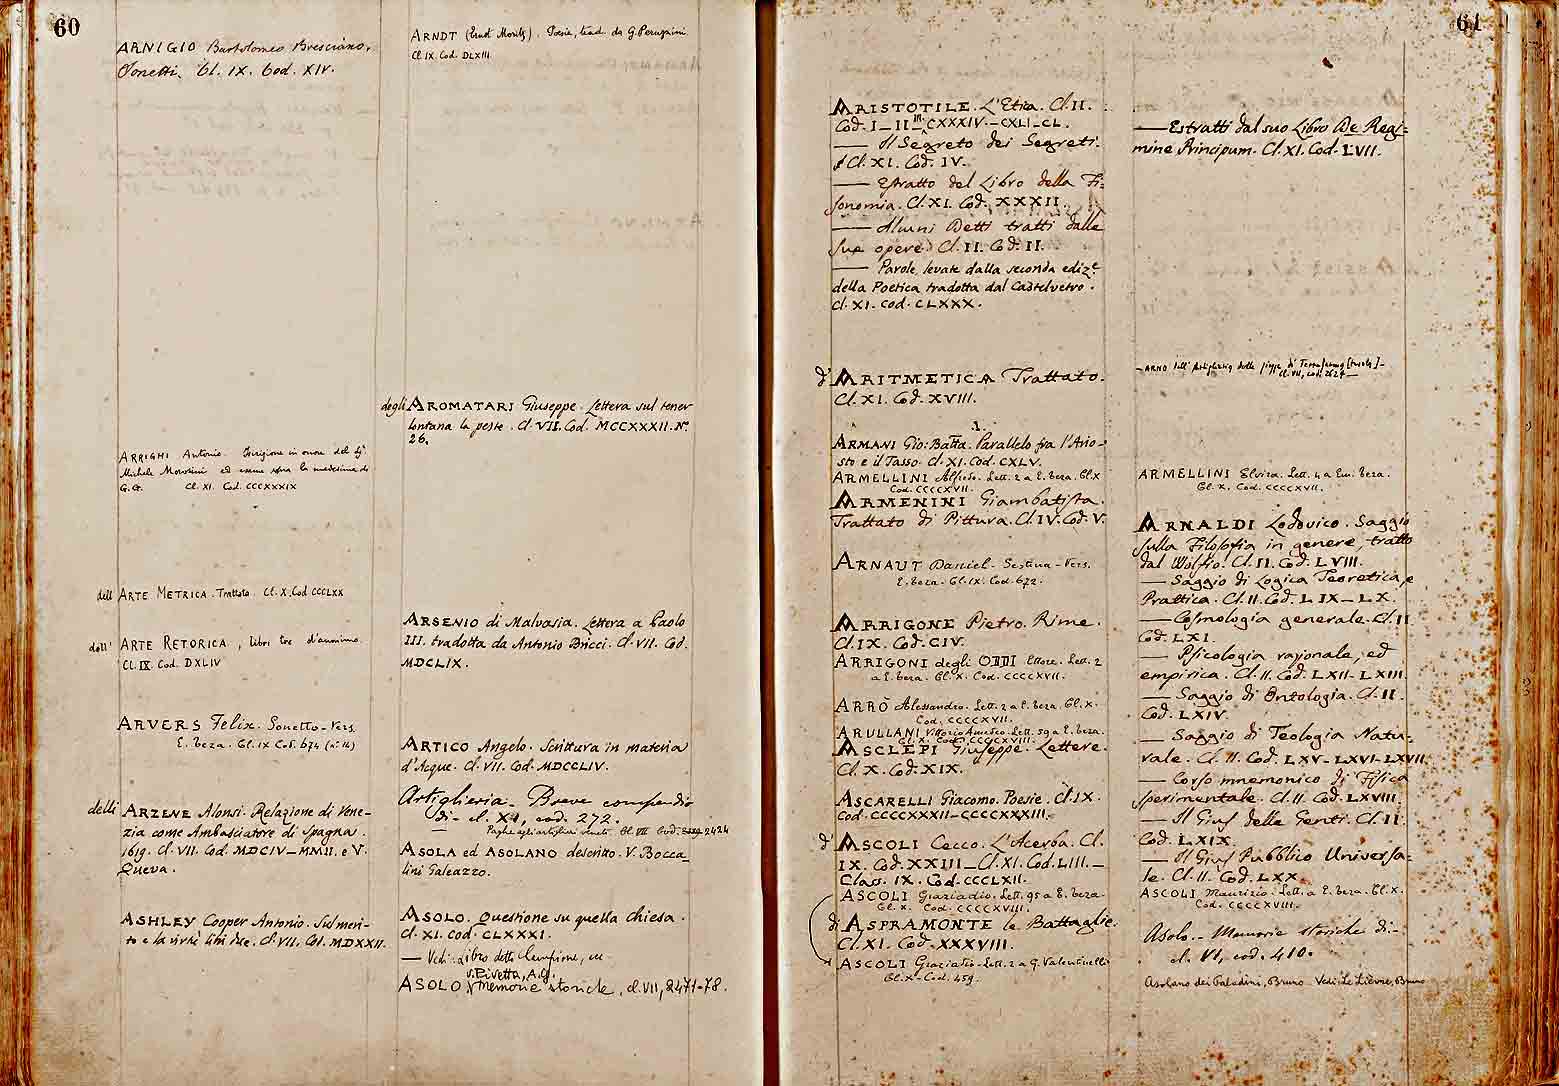 60
ARNIGIO Bartolomeo Bresciano,
Sonetti. Cl. IX. Cod. XIV.
ARRIGHI Antonio. Iscrizione in onore del
Michele Morosini ed esame sopra la medesima di
G. G. Cl. XI. Cod. CCCXXXIX
dell' ARTE METRICA. Trattato. Cl. X. Cod CCCLXX
dell' ARTE RETORICA, libri tre d'anonimo.
Cl. IX. Cod. DXLIV
ARVERS Felix. Sonetto - Vers.
E. Teza. Cl. IX Cod. 674 (n° 14)
delli ARZENE Alonsi. Relazione di Vene-
zia come Ambasciatore di Spagna.
1619. Cl. VII. Cod. MDCIV – MMII. e V.
Queva.
ASHLEY Cooper Antonio. Sul meri-
to e la virtù libri due. Cl. VII. Cod. MDXXII.
ARNDT (Ernst Moritz). Poesie, trad. da G. Peruzzini.
Cl. IX. Cod. DLXIII
degli AROMATARI Giuseppe. Lettera sul tener
lontana la peste. Cl. VII. Cod. MCCXXXII. N°
26.
ARSENIO di Malvasia. Lettera a Paolo
III. tradotta da Antonio Bricci. Cl. VII. Cod.
MDCLIX.
ARTICO Angelo. Scrittura in materia
d'Acque. Cl. VII. Cod. MDCCLIV.
Artiglieria - Breve compendio
di - cl. XI, cod. 272.
— Paghe agli artiglieri veneti. Cl. VII Cod. 2424
ASOLA ed ASOLANO descritto. V. Bocca-
lini Galeazzo.
ASOLO. Questione su quella chiesa.
Cl. XI. Cod. CLXXXI.
— Vedi: Libro detto Campione, ec
v. Pivetta, A.G.
ASOLO Memorie storiche, cl. VII, 2471-78.
61
ARISTOTILE. L'Etica. Cl. II.
Cod. I – II – III. CXXXIV. – CXLI – CL.
— Il Segreto dei Segreti.
Cl. XI. Cod. IV.
— Estratto del Libro della Fi-
sonomia. Cl. XI. Cod. XXXII.
— Alcuni Detti tratti dalle
sue opere. Cl. II. Cod. II.
— Parole levate dalla seconda ediz.e
della Poetica tradotta dal Castelvetro.
Cl. XI. Cod. CLXXX.
d' ARITMETICA Trattato.
Cl. XI. Cod. XVIII.
ARMANI Gio: Batta. Parallelo fra l'Ario-
sto e il Tasso. Cl. XI. Cod. CXLV.
ARMELLINI Alfredo. Lett. 2 a E. Teza. Cl. X
Cod. CCCCXVII.
ARMENINI Giambatista.
Trattato di Pittura. Cl. IV. Cod. V.
ARNAUT Daniel. Sestina - Vers.
E. Teza. Cl. IX. Cod. 672.
ARRIGONE Pietro. Rime.
Cl. IX. Cod. CIV.
ARRIGONI degli ODDI Ettore. Lett. 2
a E. Teza. Cl. X. Cod. CCCCXVII.
ARRÒ Alessandro. Lett. 2 a E. Teza. Cl. X.
Cod. CCCCXVII.
ARULLANI Vittorio Amedeo. Lett. 59 a E. Teza.
Cl. X. Cod. CCCCXVIII.
ASCLEPI Giuseppe. Lettere.
Cl. X. Cod: XIX.
ASCARELLI Giacomo. Poesie. Cl. IX.
Cod. CCCCXXXII – CCCCXXXIII.
d' ASCOLI Cecco. L'Acerba. Cl.
IX. Cod. XXIII – Cl. XI. Cod. LIII. –
Class. IX. Cod. CCCLXII.
ASCOLI Graziadio. Lett. 95 a E. Teza.
Cl. X. Cod. CCCCXVIII.
di ASPRAMONTE le Battaglie.
Cl. XI. Cod. XXXVIII.
ASCOLI Graziadio. Lett. 2 a G. Valentinelli
Cl. X. Cod. 459.
— Estratti dal suo Libro De Regi-
mine Principum. Cl. XI. Cod. LVII.
Cl. VII, cod. 2624 —
ARMELLINI Elvira. Lett. 4 a Em. Teza.
Cl. X. Cod. CCCCXVII.
ARNALDI Lodovico. Saggio
sulla Filosofia in genere, tratto
dal Wolfio. Cl. II. Cod. LVIII.
— Saggio di Logica Teoretica, e
Prattica. Cl. II. Cod. LIX – LX.
— Cosmologia generale. Cl. II
Cod. LXI.
— Psicologia razionale, ed
empirica. Cl. II. Cod. LXII – LXIII.
— Saggio di Ontologia. Cl. II.
Cod. LXIV.
— Saggio di Teologia Natu-
rale. Cl. II. Cod. LXV – LXVI – LXVII
— Corso mnemonico di Fisica
sperimentale. Cl. II. Cod. LXVIII.
— Il Gius delle Genti. Cl. II.
Cod. LXIX.
— Il Gius Pubblico Universa-
le. Cl. II. Cod. LXX.
ASCOLI Maurizio. Lett. a E. Teza. Cl. X.
Cod. CCCCXVIII.
Asolo. – Memorie storiche di –
cl. VI, cod. 410.
Asolano dei Paladini, Bruno – Vedi Le Lièvre, Bruno